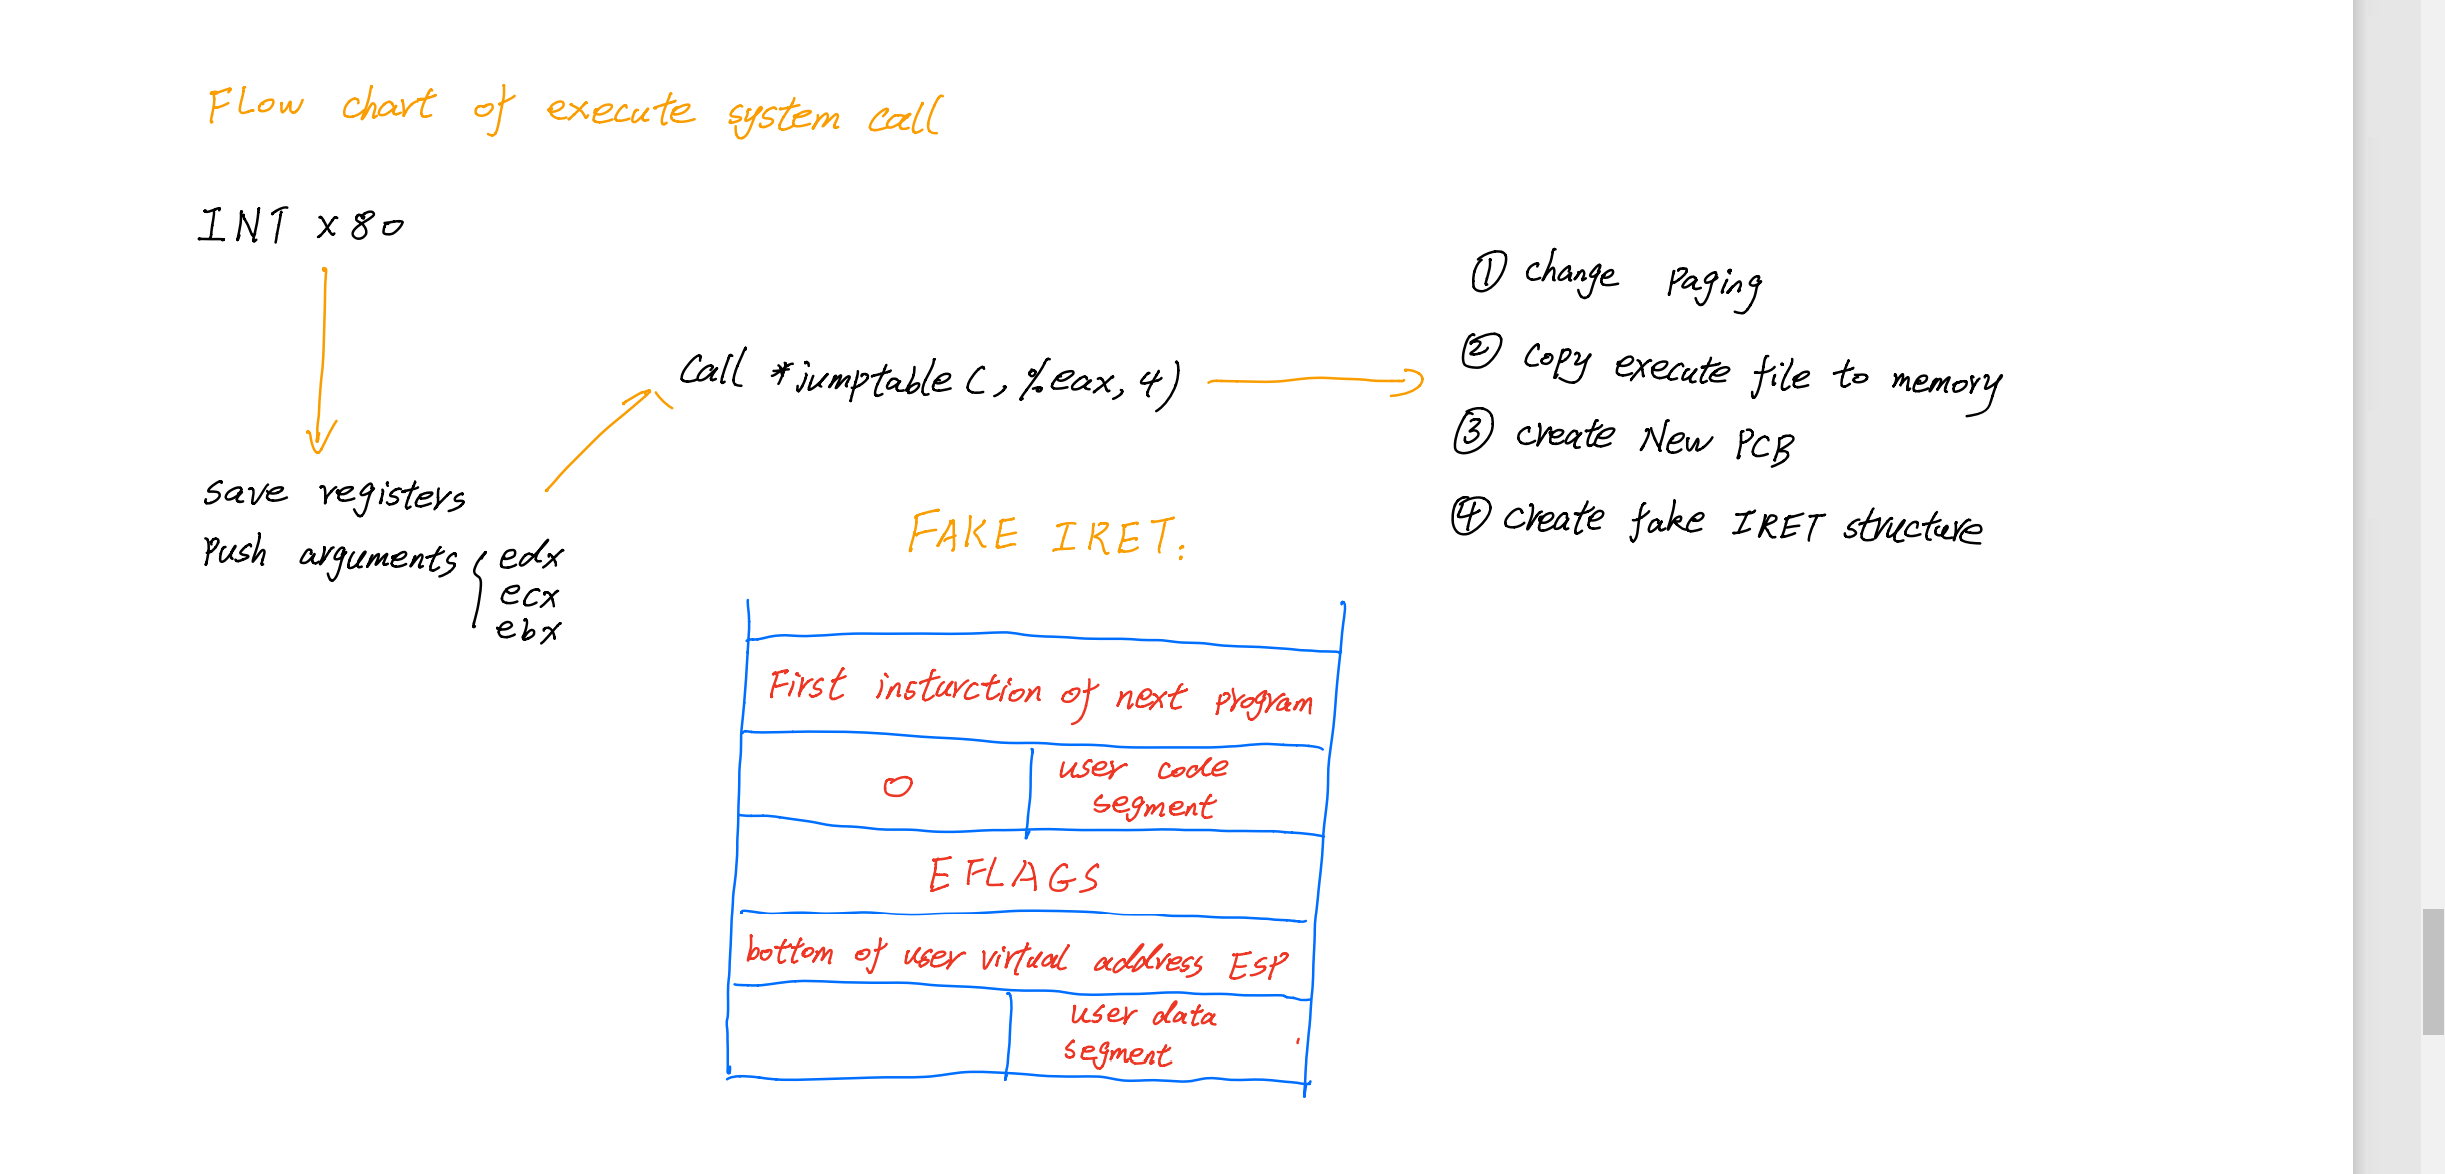 FLow chart of execute system call
INT x80
save registers
Push arguments { edx
ecx
ebx
Call *jumptable (, %eax, 4)
① change paging
② copy execute file to memory
③ create New PCB
④ create fake IRET structure
FAKE IRET:
First insturction of next program
0
user code
segment
EFLAGS
bottom of user virtual address ESP
user data
segment